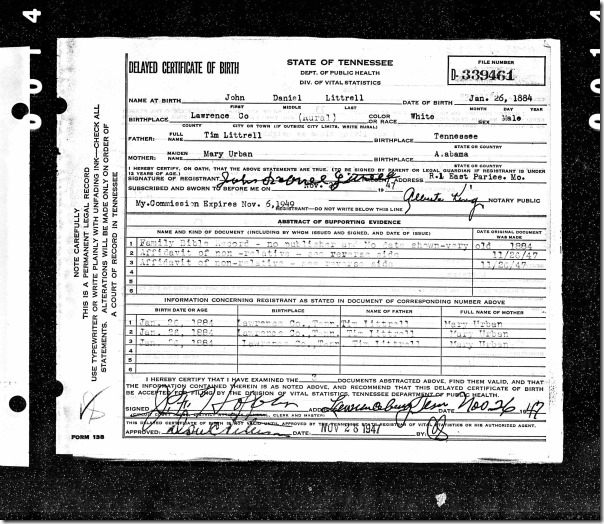 0014
0014
DELAYED CERTIFICATE OF BIRTH
STATE OF TENNESSEE
DEPT. OF PUBLIC HEALTH
DIV. OF VITAL STATISTICS
FILE NUMBER
D-339461
NAME AT BIRTH John Daniel Littrell DATE OF BIRTH Jan. 26, 1884
FIRST MIDDLE LAST MONTH DAY YEAR
BIRTHPLACE Lawrence Co (Rural) COLOR OR RACE White SEX Male
COUNTY CITY OR TOWN (IF OUTSIDE CITY LIMITS, WRITE RURAL)
FATHER: FULL NAME Tim Littrell BIRTHPLACE Tennessee
STATE OR COUNTRY
MOTHER: MAIDEN NAME Mary Urban BIRTHPLACE Alabama
STATE OR COUNTRY
I HEREBY CERTIFY, ON OATH, THAT THE ABOVE STATEMENTS ARE TRUE. (TO BE SIGNED BY PARENT OR LEGAL GUARDIAN IF REGISTRANT IS UNDER
12 YEARS OF AGE.)
SIGNATURE OF REGISTRANT John Daniel Littrell ADDRESS R.1 East Parlee. Mo.
SUBSCRIBED AND SWORN TO BEFORE ME ON Nov. 1947 NOTARY PUBLIC
My.Commission Expires Nov. 5,1949
REGISTRANT—DO NOT WRITE BELOW THIS LINE
ABSTRACT OF SUPPORTING EVIDENCE
NAME AND KIND OF DOCUMENT (INCLUDING BY WHOM ISSUED AND SIGNED, AND DATE OF ISSUE) DATE ORIGINAL DOCUMENT WAS MADE
1 Family Bible Record - no publisher and No date shown-very old 1884
2 Affidavit of non-relative - see reverse side 11/26/47
3 Affidavit of non-relative - see reverse side 11/26/47
4
5
6
INFORMATION CONCERNING REGISTRANT AS STATED IN DOCUMENT OF CORRESPONDING NUMBER ABOVE
BIRTH DATE OR AGE BIRTHPLACE NAME OF FATHER FULL NAME OF MOTHER
1 Jan. 26, 1884 Lawrence Co., Tenn. Tim Littrell Mary Urban
2 Jan. 26, 1884 Lawrence Co., Tenn. Tim Littrell Mary Urban
3 Jan. 26, 1884 Lawrence Co., Tenn. Tim Littrell Mary Urban
4
5
6
I HEREBY CERTIFY THAT I HAVE EXAMINED THE 3 DOCUMENTS ABSTRACTED ABOVE, FIND THEM VALID, AND THAT
THE INFORMATION CONTAINED THEREIN IS AS NOTED ABOVE, AND RECOMMEND THAT THIS DELAYED CERTIFICATE OF BIRTH
BE ACCEPTED FOR FILING BY THE DIVISION OF VITAL STATISTICS, TENNESSEE DEPARTMENT OF PUBLIC HEALTH.
SIGNED ADDRESS Lawrenceburg Tenn DATE Nov 26, 1947
CLERK AND MASTER
THIS DELAYED CERTIFICATE OF BIRTH IS NOT VALID UNTIL APPROVED BY THE TENNESSEE STATE REGISTRAR OF VITAL STATISTICS OR HIS AUTHORIZED AGENT.
APPROVED: DATE: NOV 28 1947 BY:
FORM 13B
NOTE CAREFULLY
THIS IS A PERMANENT LEGAL RECORD
USE TYPEWRITER OR WRITE PLAINLY WITH UNFADING INK—CHECK ALL
STATEMENTS. ALTERATIONS WILL BE MADE ONLY ON ORDER OF
A COURT OF RECORD IN TENNESSEE